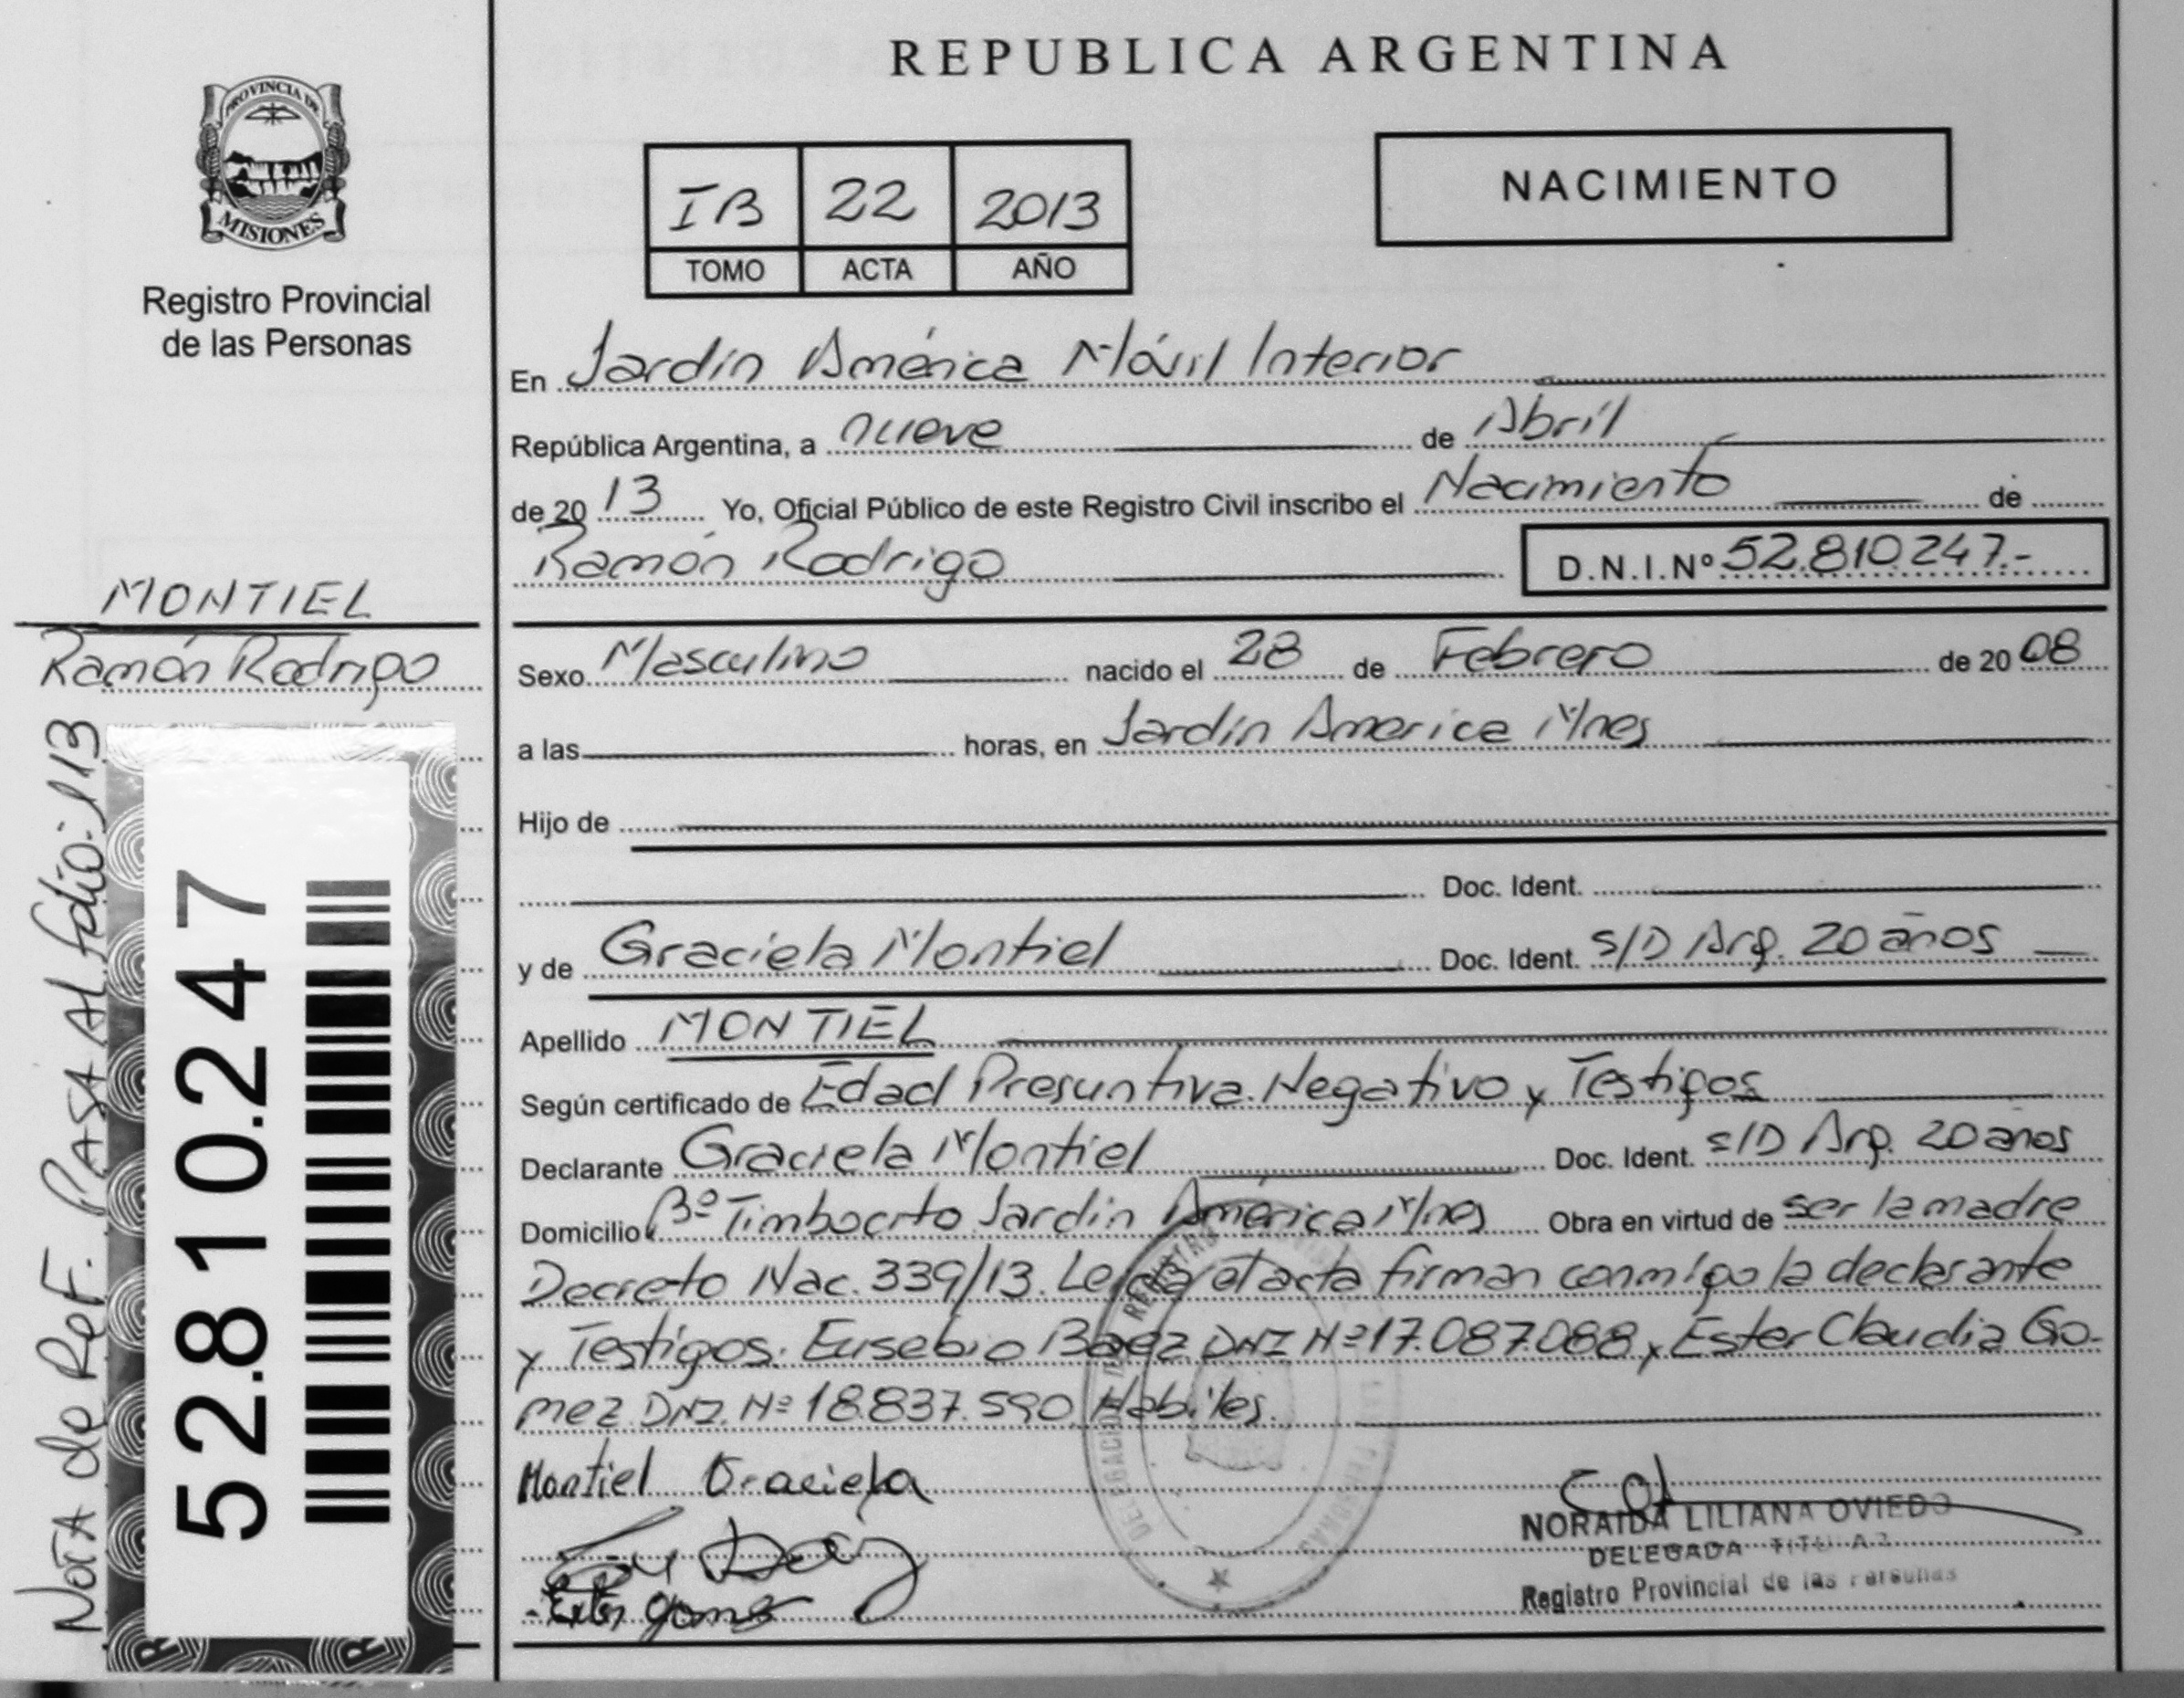 REPUBLICA ARGENTINA
PROVINCIA DE
MISIONES
Registro Provincial
de las Personas
IB 22 2013
TOMO ACTA AÑO
NACIMIENTO
En Jardín América Móvil Interior
República Argentina, a nueve de Abríl
de 20 13 Yo, Oficial Público de este Registro Civil inscribo el Nacimiento de
Ramón Rodrigo D.N.I.Nº 52.810.247.-
MONTIEL
Ramón Rodrigo
Sexo Masculino nacido el 28 de Febrero de 20 08
a las horas, en Jardín America Mnes
Hijo de
Doc. Ident.
y de Graciela Montiel Doc. Ident. S/D Arg. 20 años
Apellido MONTIEL
Según certificado de Edad Presuntiva. Negativo y Testigos
Declarante Graciela Montiel Doc. Ident. S/D Arg. 20 años
Domicilio Bº Timbocito Jardín América Mnes Obra en virtud de ser la madre
Decreto Nac. 339/13. Leída el acta firman conmigo la declarante
y Testigos: Eusebio Baez DNI Nº 17.087.088 y Ester Claudia Go-
mez DNI. Nº 18.837.590 Habiles.
Montiel Graciela
Ester Gomez
NORAIDA LILIANA OVIEDO
DELEGADA TITULAR
Registro Provincial de las Personas
NOTA de Ref. PASA Al folio: 113
52.810.247